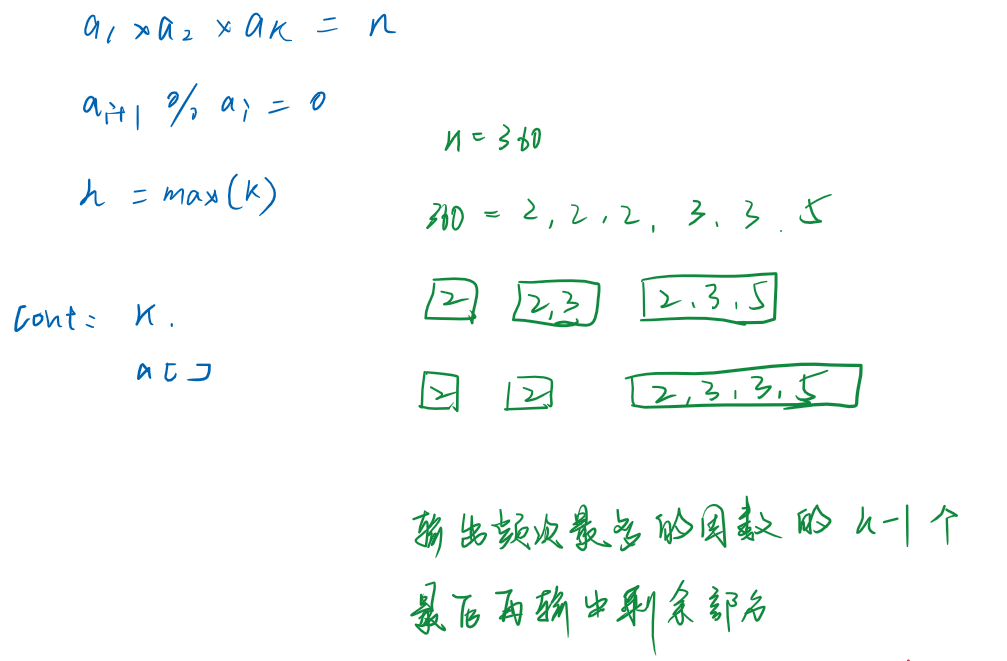 a₁ × a₂ × aₖ = n
aᵢ₊₁ % aᵢ = 0
h = max(k)
Cont: k.
a[]
n = 360
360 = 2, 2, 2, 3, 3, 5
2 2,3 2,3,5
2 2 2,3,3,5
输出频次最多的因数的 h-1 个
最后再输出剩余部分